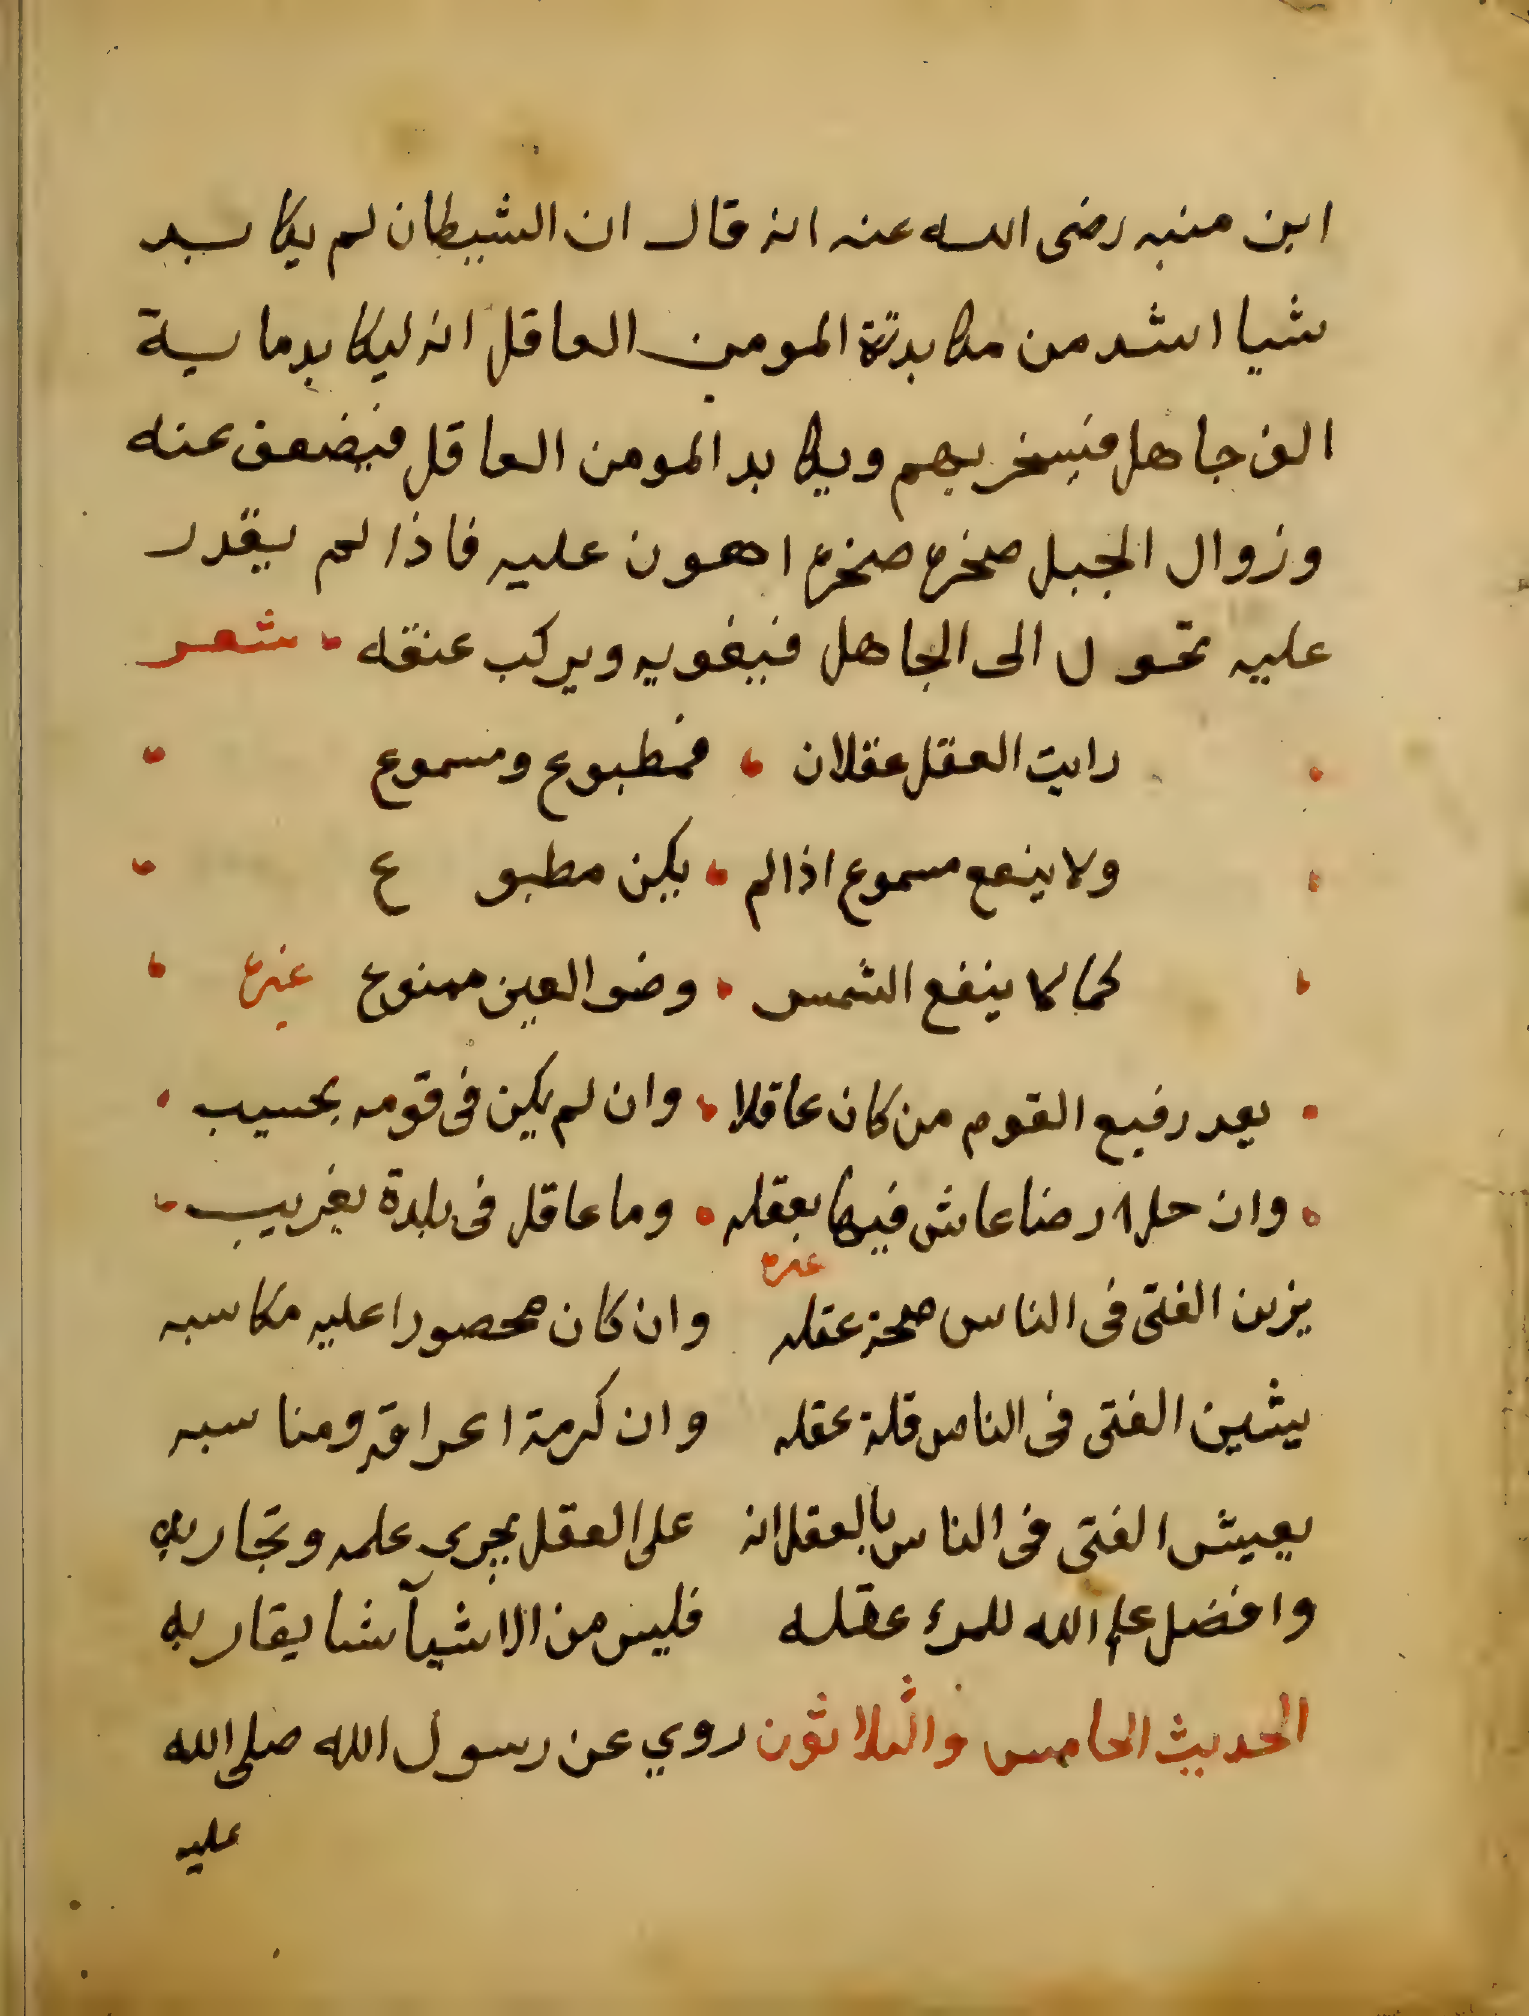 ابن منبه رضى الله عنه انه قال ان الشيطان لم يكابد
شيا اشد من مكابدة المومن العاقل انه ليكابد ماية
الف جاهل فيسخر بهم ويكابد المومن العاقل فيضعف عنه
وزوال الجبل صخرة صخرة اهون عليه فاذا لم يقدر
عليه تحول الى الجاهل فيغويه ويركب عنقه شعر
رايت العقل عقلان فمطبوع ومسموع
ولا ينفع مسموع اذا لم يكن مطبوع
كما لا ينفع الشمس وضو العين ممنوع غيره
يعد رفيع القوم من كان عاقلا وان لم يكن فى قومه بحسيب
وان حل ارضا عاش فيها بعقله وما عاقل فى بلدة بغريب
غيره
يزين الفتى فى الناس صحة عقله وان كان محصورا عليه مكاسبه
يشين الفتى فى الناس قلة عقله وان كرمة اعراقه ومناسبه
يعيش الفتى فى الناس بالعقل انه على العقل يجرى علمه وتجاربه
وافضل علم الله للمرء عقله فليس من الاشيآ شا يقاربه
الحديث الخامس والثلاثون روي عن رسول الله صلى الله
عليه